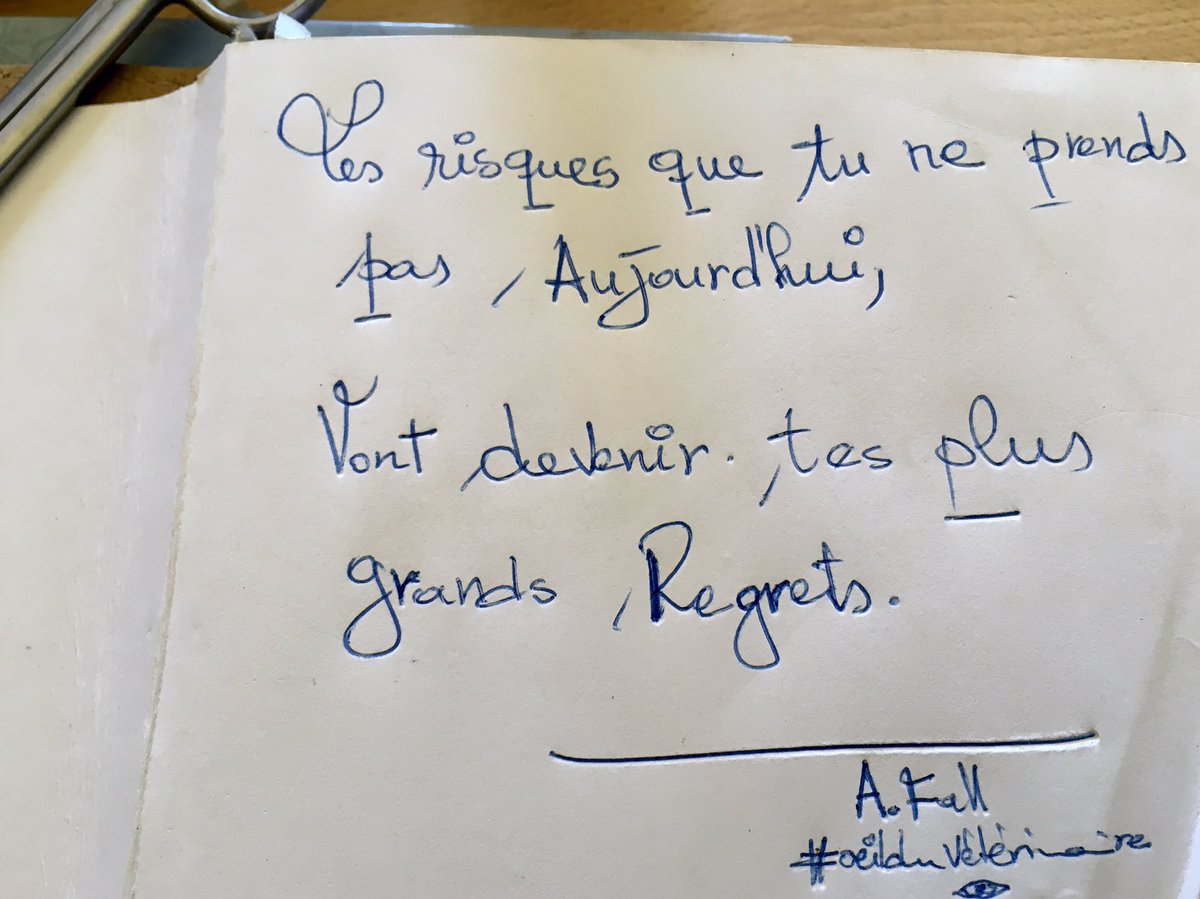 Les risques que tu ne prends
pas, Aujourd'hui,
Vont devenir. tes plus
grands, Regrets.
A. Fall
#oeilduVétérinaire